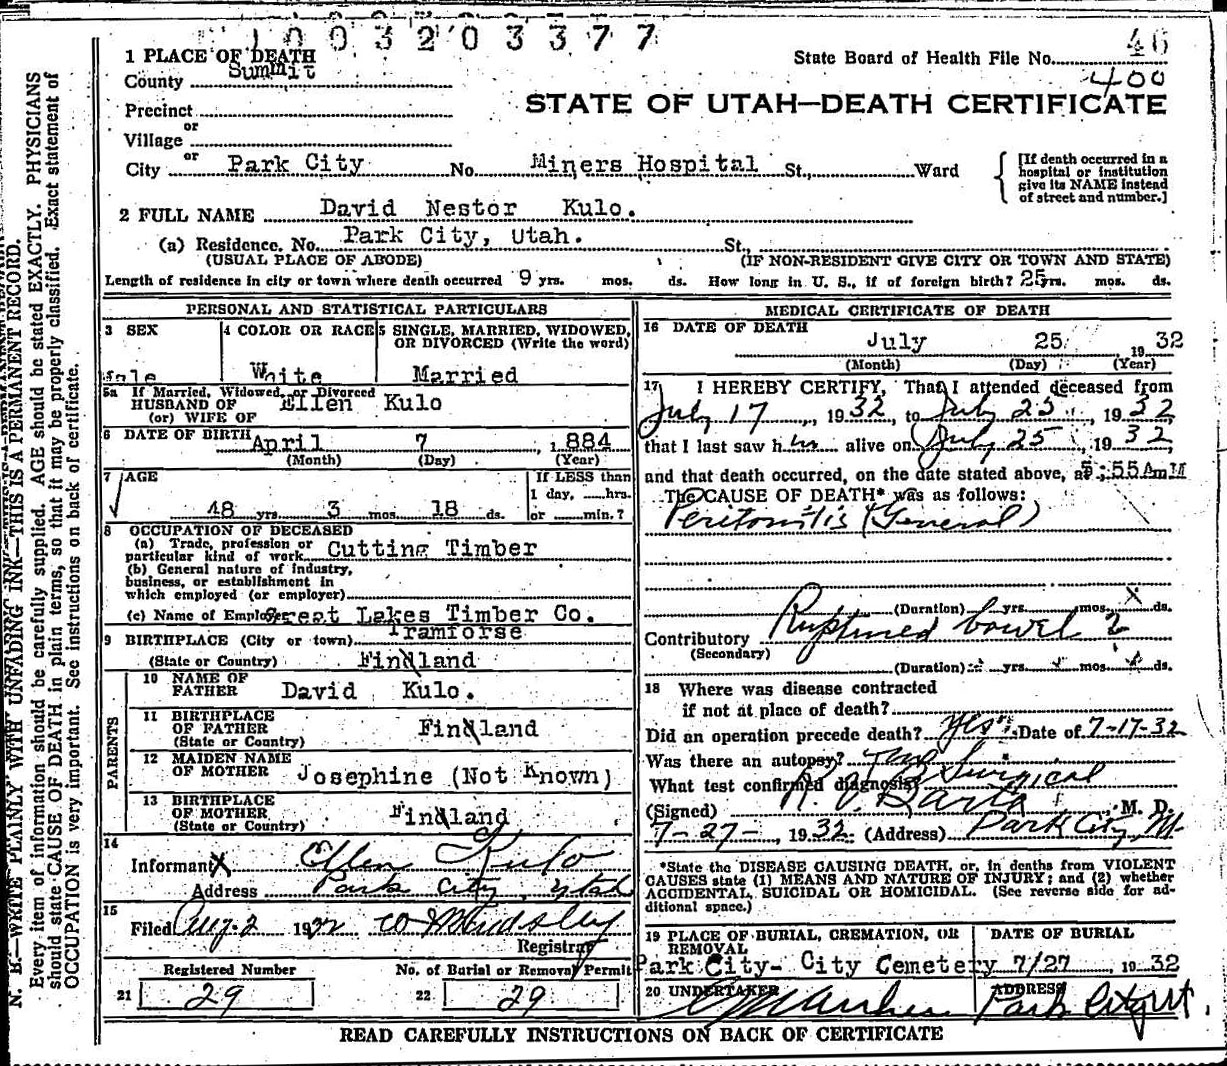 1003203377
46
1 PLACE OF DEATH
State Board of Health File No.
400
County Summit
STATE OF UTAH—DEATH CERTIFICATE
Precinct
or
Village
or
City Park City No. Miners Hospital St., Ward
[If death occurred in a hospital or institution give its NAME instead of street and number.]
2 FULL NAME David Nestor Kulo.
(a) Residence. No. Park City, Utah. St.,
(USUAL PLACE OF ABODE) (IF NON-RESIDENT GIVE CITY OR TOWN AND STATE)
Length of residence in city or town where death occurred 9 yrs. mos. ds. How long in U. S., if of foreign birth? 25 yrs. mos. ds.
PERSONAL AND STATISTICAL PARTICULARS
3 SEX
Male
4 COLOR OR RACE
White
5 SINGLE, MARRIED, WIDOWED, OR DIVORCED (Write the word)
Married
5a If Married, Widowed, or Divorced
HUSBAND OF Ellen Kulo
(or) WIFE OF
6 DATE OF BIRTH April 7, 1884
(Month) (Day) (Year)
7 AGE
48 yrs. 3 mos. 18 ds.
If LESS than
1 day, hrs.
or min.?
8 OCCUPATION OF DECEASED
(a) Trade, profession or
particular kind of work Cutting Timber
(b) General nature of industry,
business, or establishment in
which employed (or employer)
(c) Name of Employer Great Lakes Timber Co.
9 BIRTHPLACE (City or town) Tramforse
(State or Country) Finland
PARENTS
10 NAME OF
FATHER David Kulo.
11 BIRTHPLACE
OF FATHER Finland
(State or Country)
12 MAIDEN NAME
OF MOTHER Josephine (Not Known)
13 BIRTHPLACE
OF MOTHER Finland
(State or Country)
14
Informant X Ellen Kulo
Address Park City Utah
15
Filed Aug. 2 1932
Registrar
Registered Number
No. of Burial or Removal Permit
21 29
22 29
MEDICAL CERTIFICATE OF DEATH
16 DATE OF DEATH
July 25 1932
(Month) (Day) (Year)
17 I HEREBY CERTIFY, That I attended deceased from
July 17, 1932, to July 25, 1932,
that I last saw him alive on July 25, 1932,
and that death occurred, on the date stated above, at 5:55 A m M
The CAUSE OF DEATH* was as follows:
Peritonitis (General)
(Duration) yrs. mos. X ds.
Contributory Ruptured bowel 2
(Secondary)
(Duration) yrs. mos. ds.
18 Where was disease contracted
if not at place of death?
Did an operation precede death? Yes Date of 7-17-32
Was there an autopsy?
What test confirmed diagnosis? Surgical
(Signed) M. D.
7-27-, 1932 (Address) Park City, Ut.
*State the DISEASE CAUSING DEATH, or, in deaths from VIOLENT
CAUSES state (1) MEANS AND NATURE OF INJURY; and (2) whether
ACCIDENTAL, SUICIDAL OR HOMICIDAL. (See reverse side for ad-
ditional space.)
19 PLACE OF BURIAL, CREMATION, OR
REMOVAL
Park City- City Cemetery
DATE OF BURIAL
7/27, 1932
20 UNDERTAKER
ADDRESS
Park City Ut.
READ CAREFULLY INSTRUCTIONS ON BACK OF CERTIFICATE
N. B.—WRITE PLAINLY WITH UNFADING INK—THIS IS A PERMANENT RECORD.
Every item of information should be carefully supplied. AGE should be stated EXACTLY. PHYSICIANS
should state CAUSE OF DEATH in plain terms, so that it may be properly classified. Exact statement of
OCCUPATION is very important. See instructions on back of certificate.